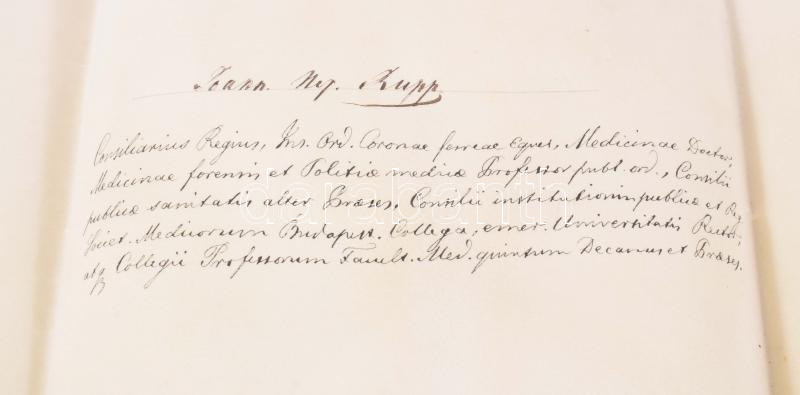 Joann. Nep. Rupp
Consiliarius Regius, Ins. Ord. Coronae ferreae Eques, Medicinae Doctor,
Medicinae forensis et Politiae medicae Professor publ. ord., Consilii
publicae sanitatis alter Praeses, Consilii institutionum publicae et Reg.
Societ. Medicorum Budapest. Collega, emer. Universitatis Rector,
atq Collegii Professorum Facult. Med. quintum Decanus et Praeses.
darabanth